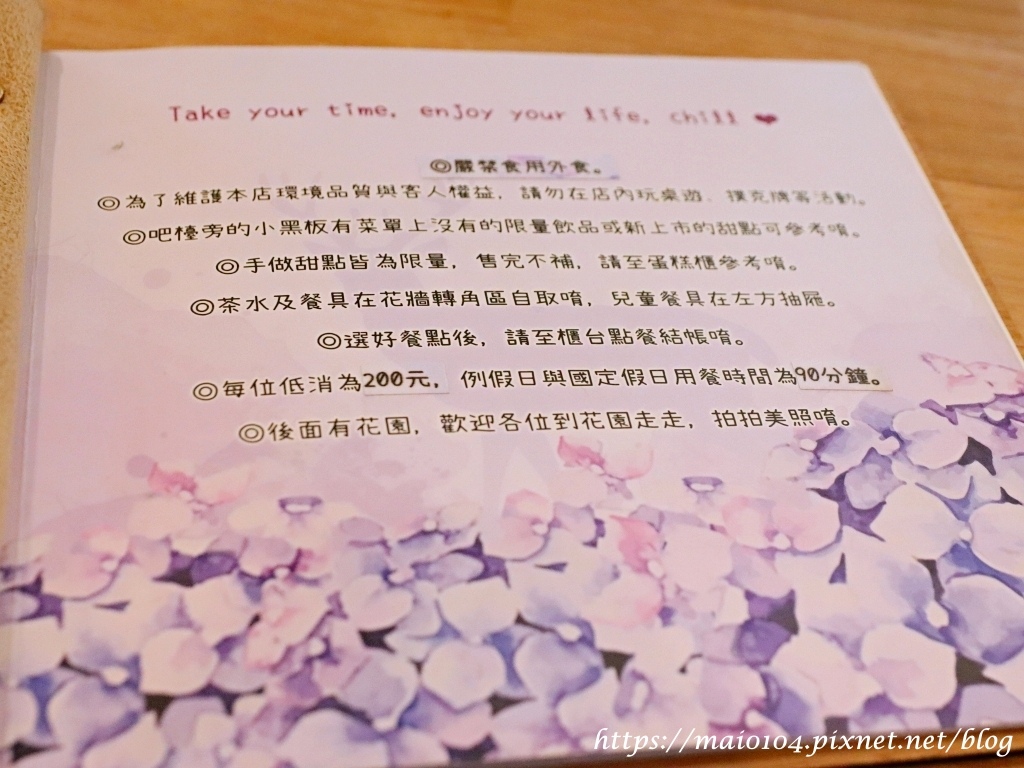 Take your time, enjoy your life, chill ❤
◎嚴禁食用外食。
◎為了維護本店環境品質與客人權益，請勿在店內玩桌遊、撲克牌等活動。
◎吧檯旁的小黑板有菜單上沒有的限量飲品或新上市的甜點可參考唷。
◎手做甜點皆為限量，售完不補，請至蛋糕櫃參考唷。
◎茶水及餐具在花牆轉角區自取唷，兒童餐具在左方抽屜。
◎選好餐點後，請至櫃台點餐結帳唷。
◎每位低消為200元，例假日與國定假日用餐時間為90分鐘。
◎後面有花園，歡迎各位到花園走走，拍拍美照唷。
https://maio104.pixnet.net/blog